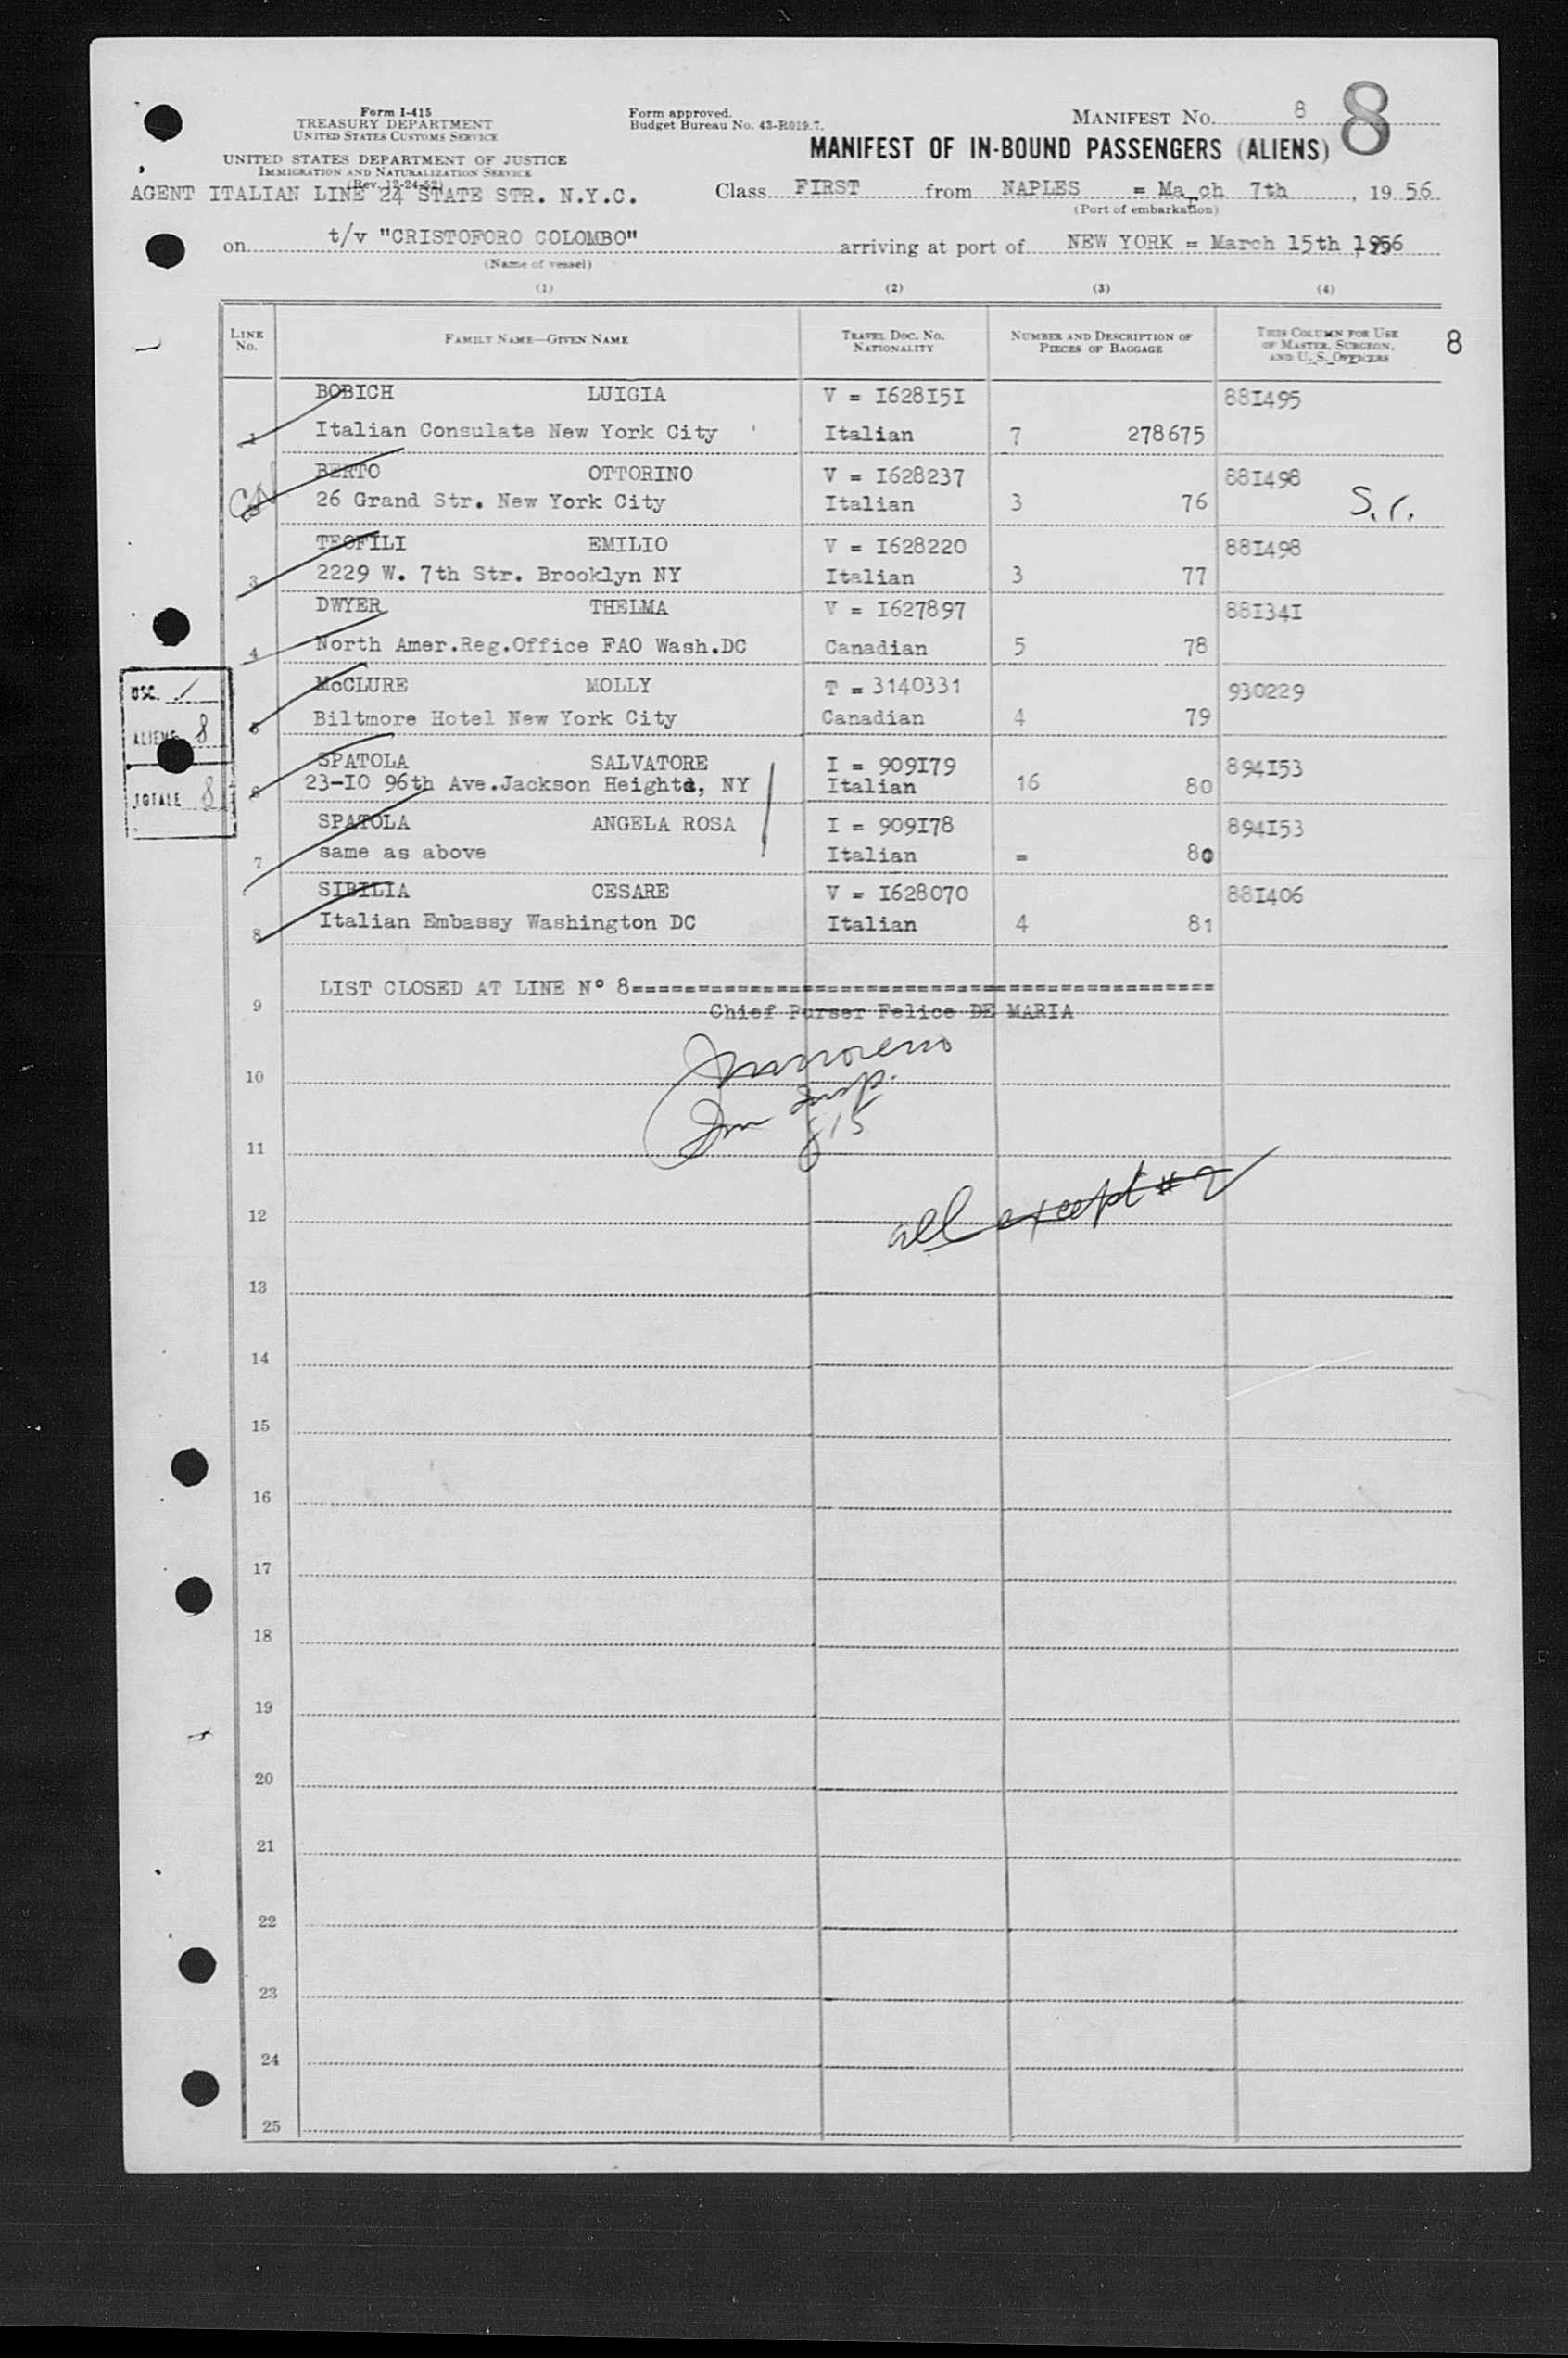 Form I-415
TREASURY DEPARTMENT
UNITED STATES CUSTOMS SERVICE
UNITED STATES DEPARTMENT OF JUSTICE
IMMIGRATION AND NATURALIZATION SERVICE
(Rev. 12-24-52)
AGENT ITALIAN LINE 24 STATE STR. N.Y.C.
Form approved.
Budget Bureau No. 43-R019.7.
MANIFEST No. 8 8
MANIFEST OF IN-BOUND PASSENGERS (ALIENS)
Class FIRST from NAPLES = March 7th, 19 56
(Port of embarkation)
on t/v "CRISTOFORO COLOMBO" arriving at port of NEW YORK = March 15th 1956
(Name of vessel)
(1) (2) (3) (4)
LINE No. FAMILY NAME—GIVEN NAME TRAVEL DOC. No. NATIONALITY NUMBER AND DESCRIPTION OF PIECES OF BAGGAGE THIS COLUMN FOR USE OF MASTER, SURGEON, AND U. S. OFFICERS 8
BOBICH LUIGIA V = I628I5I 88I495
1 Italian Consulate New York City Italian 7 278675
BERTO OTTORINO V = I628237 88I498
26 Grand Str. New York City Italian 3 76
TEOFILI EMILIO V = I628220 88I498
3 2229 W. 7th Str. Brooklyn NY Italian 3 77
DWYER THELMA V = I627897 88I34I
4 North Amer.Reg.Office FAO Wash.DC Canadian 5 78
McCLURE MOLLY T = 3140331 930229
5 Biltmore Hotel New York City Canadian 4 79
SPATOLA SALVATORE I = 909I79 894I53
6 23-I0 96th Ave.Jackson Heights, NY Italian 16 80
SPATOLA ANGELA ROSA I = 909I78 894I53
7 same as above Italian = 80
SIBILIA CESARE V = I628070 88I406
8 Italian Embassy Washington DC Italian 4 81
USC.
ALIENS 8
TOTALE 8
LIST CLOSED AT LINE N° 8=============================================
9 Chief Purser Felice DE MARIA
10
Imm Insp.
11
all except # 2
12
13
14
15
16
17
18
19
20
21
22
23
24
25